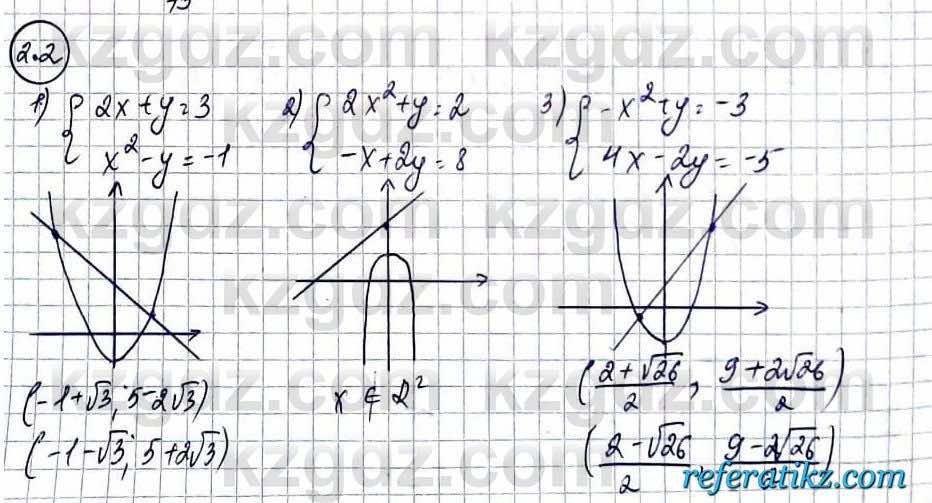 2.2
1) { 2x+y=3
x²-y=-1
2) { 2x²+y=2
-x+2y=8
3) { -x²+y=-3
4x-2y=-5
(-1+√3; 5-2√3)
(-1-√3; 5+2√3)
x ∉ R²
((2+√26)/2, (9+2√26)/2)
((2-√26)/2, (9-2√26)/2)
kzgdz.com
referatikz.com